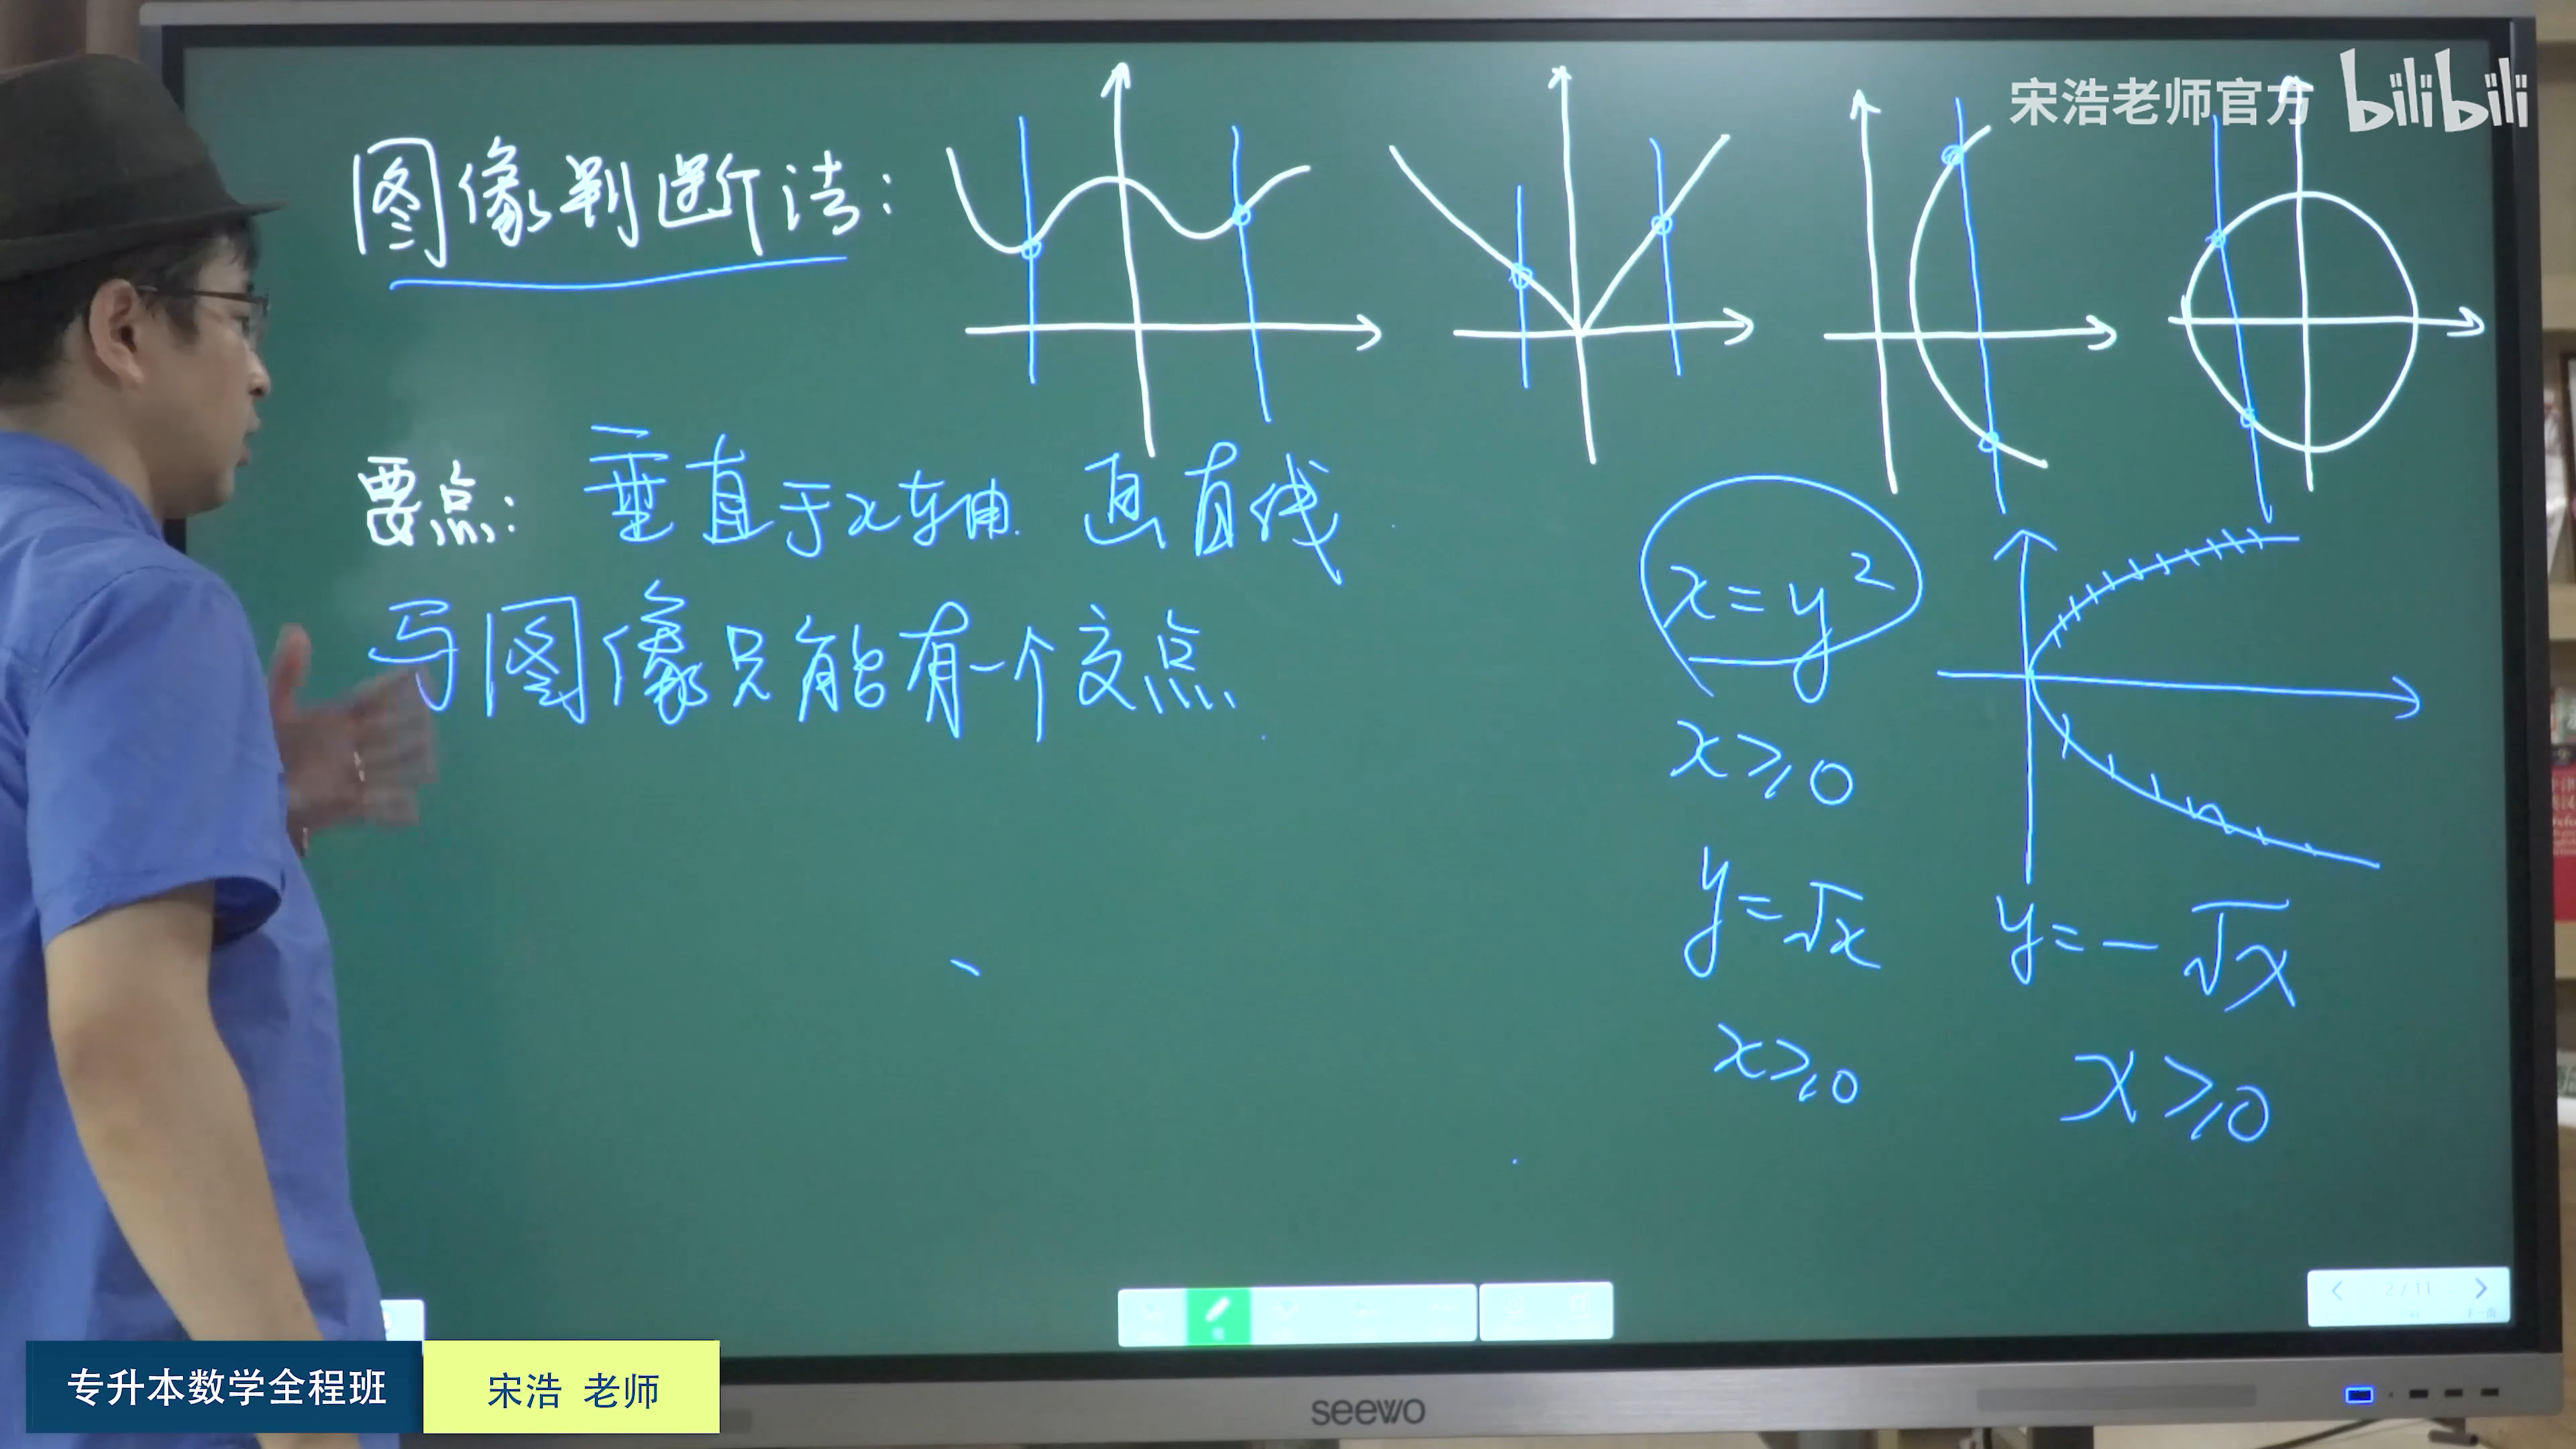 宋浩老师官方 bilibili
图像判断法：
要点： 垂直于x轴 画直线
与图像只能有一个交点
x=y²
x≥0
y=√x y=-√x
x≥0 x≥0
2/11
专升本数学全程班 宋浩 老师
seewo